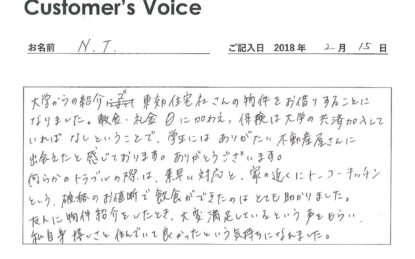 Customer's Voice
お名前 N.T. ご記入日 2018 年 2 月 15 日
大学からの紹介で 東効住宅社さんの物件をお借りすることに
なりました。敷金・礼金 0 に加わえ、保険は大学の共済加入して
いれば なしということで、学生には ありがたい 不動産屋さんに
出会えたと感じております。ありがとうございます。
何らかのトラブルの際は、素早い対応と、家の近くにトーコーキッチン
という、破格のお値断で飲食ができたのはとても助かりました。
友人に物件紹介をしたとき、大変満足しているという声をもらい、
私自身 嬉しさと住んでいて良かったという気持ちになれました。